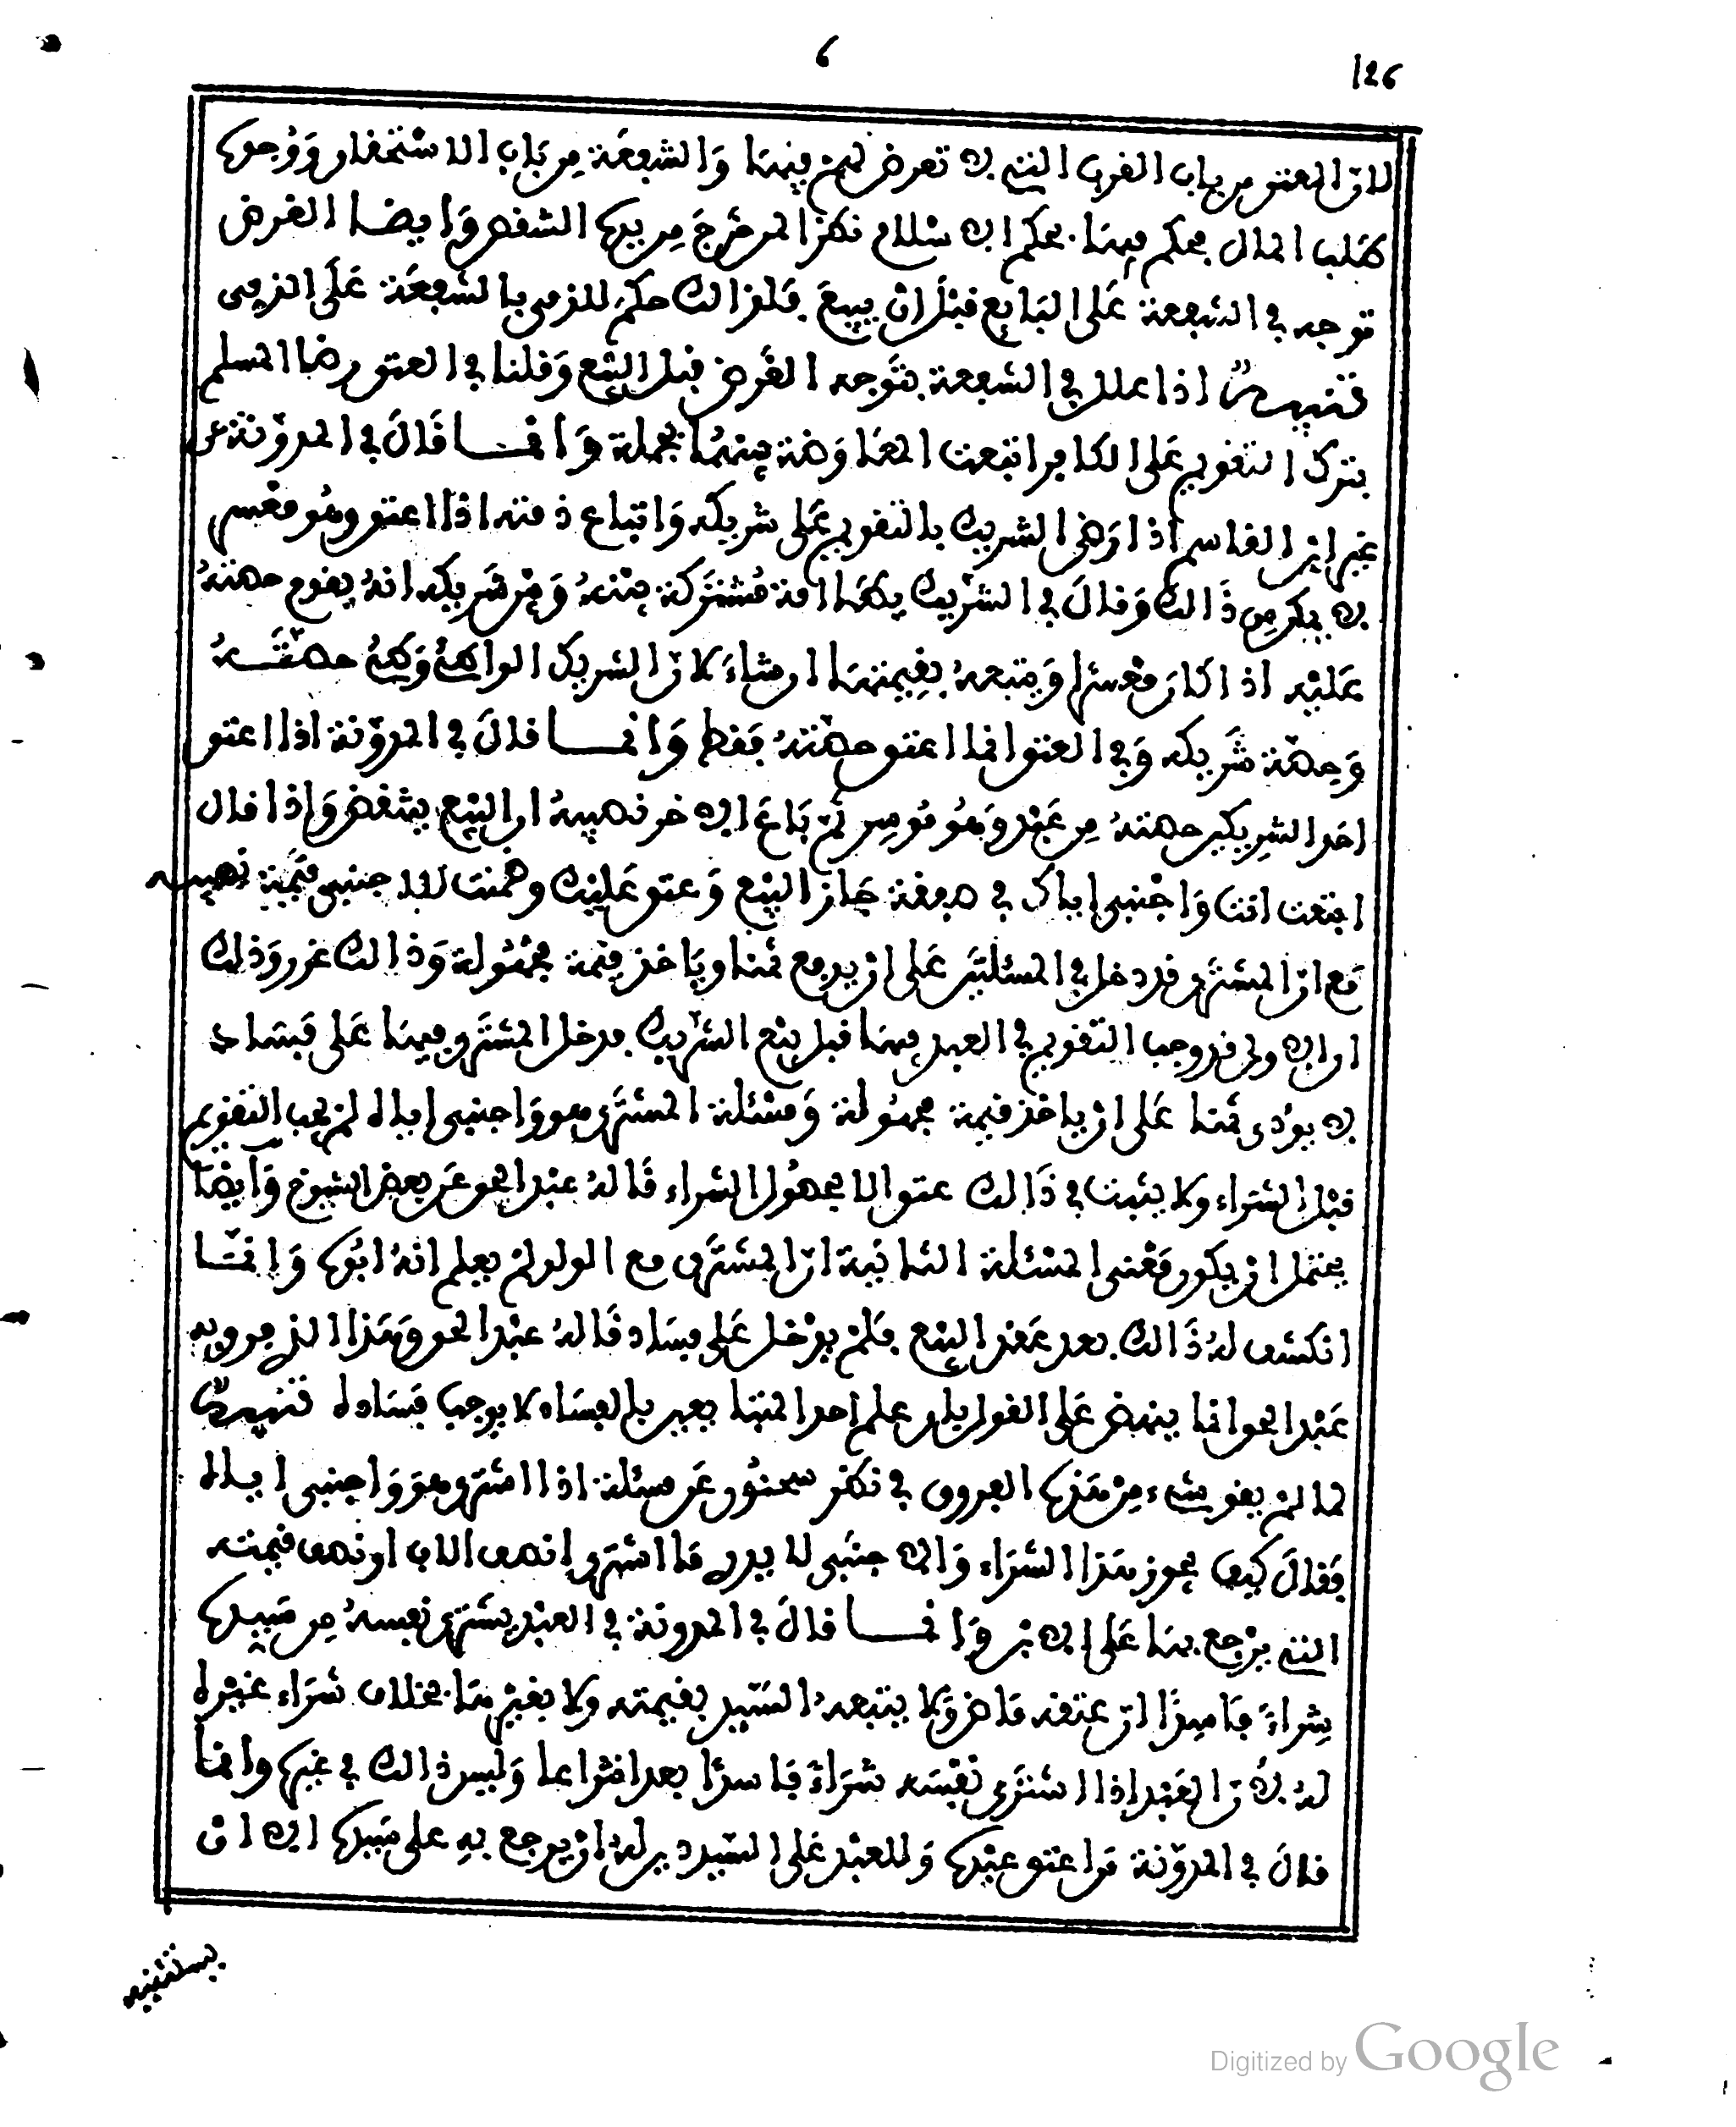 6
126
لان العتق من باب القرب التي لا تعرض لهم فيها والشفعة من باب الاستحقاق ووجهها
طلب المال يحكم فيها بحكم الاسلام نظرا لمن خرج من يده الشقص وايضا الغرض
توجه في الشفعة على البايع قبل ان يبيع فلذالك حكم للذمي بالشفعة على الذمي
تنبيه اذا علل في الشفعة بتوجه الغرض قبل البيع وقلنا في العتق رضا المسلم
بترك التقويم على الكافر اتبعت المعاوضة بينهما بجملة وانما قال في المدونة عن
غير ابن القاسم اذا رضي الشريك بالتقويم على شريكه واتباع ذمته اذا اعتق وهو معسر
لا يمكن من ذالك وقال في الشريك يطأ امة مشتركة بينه وبين شريكه انه يقوم حصته
عليه اذا كان معسرا ويتبعه بقيمتها ان شاء لان الشريك الواطئ وطئ حصته
وحصة شريكه وفي العتق انما اعتق حصته فقط وانما قال في المدونة اذا اعتق
احد الشريكين حصته من عبد وهو موسر ثم باع الاخر نصيبه ان البيع ينقض واذا قال
ابتعت انت واجنبي اباك في صفقة جاز البيع وعتق عليك وضمنت للاجنبي قيمة نصيبه
مع ان المشتري قد دخل في المسئلتين على ان يدفع ثمنا وياخذ قيمة مجهولة وذالك غرر وذلك
ان الاولى قد وجب التقويم في العبد فيها قبل بيع الشريك فدخل المشتري فيها على فساد
لا يؤدي ثمنا على ان ياخذ قيمة مجهولة ومسئلة المشتري هو واجنبي اباه لم يجب التقويم
قبل الشراء ولا يثبت في ذالك عتق الا بحصول الشراء قاله عبد الحق عن بعض الشيوخ وايضا
يحتمل ان يكون معنى المسئلة الثانية ان المشتري مع الولد لم يعلم انه ابوه وانما
انكشف له ذالك بعد عقد البيع فلم يدخل على فساد قاله عبد الحق وهذا الذي فرق به
عبد الحق انما ينهض على القول بان علم احد المتبايعين بالفساد لا يوجب فساده تنبيه
لما لم يقو شيء من هذه الفروق في نظر سحنون عن مسئلة اذا اشترى هو واجنبي اباه
فقال كيف يجوز هذا الشراء والاجنبي لا يدري ما اشترى انصف الاب او نصف قيمته
التي يرجع بها على الابن وانما قال في المدونة في العبد يشتري نفسه من سيده
شراء فاسدا ان عتقه ماض ولا يتبعه السيد بقيمته ولا بغيرها بخلاف شراء غيره
له لان العبد اذا اشترى نفسه شراء فاسدا بعد انتزاعا وليس ذالك في غيره وانما
قال في المدونة من اعتق عبده وللعبد على السيد دين له ان يرجع به على سيده الا ان
يستثنيه
Digitized by Google